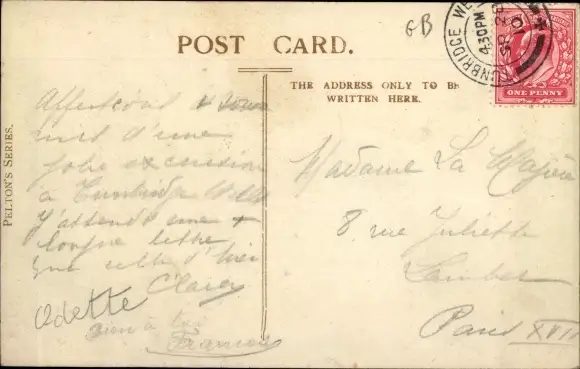 GB
POST CARD.
THE ADDRESS ONLY TO BE
WRITTEN HERE.
PELTON'S SERIES.
TUNBRIDGE WE
4.30PM
ONE PENNY
d'une
jolie excursion
à Tunbridge Wells
J'attends une +
longue lettre
que celle d'hier
Clary
Odette
bien à toi
Madame La
8 rue Juliette
Lamber
Paris XVII